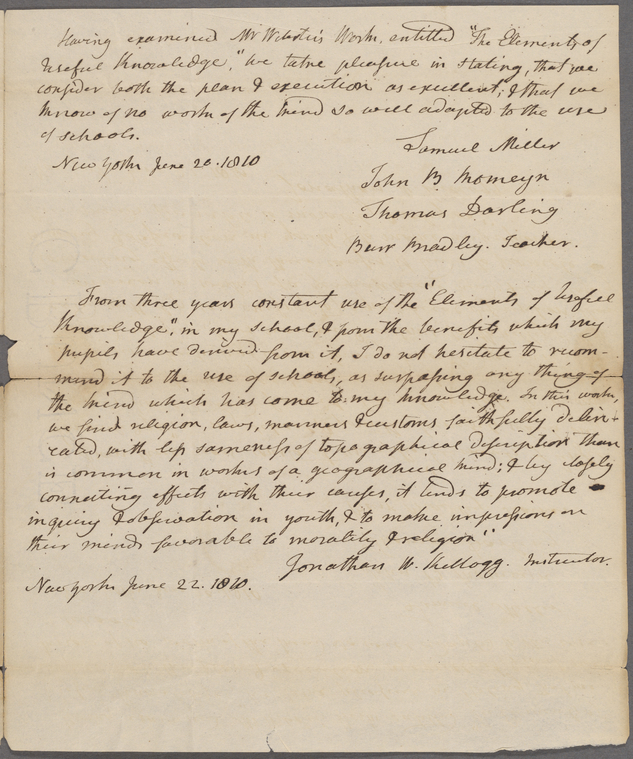 Having examined Mr Webster's Work, entitled "The Elements of
Useful Knowledge," we take pleasure in stating, that we
consider both the plan & execution as excellent; & that we
know of no work of the kind so well adapted to the use
of schools.
Samuel Miller
New York June 20. 1810
John B Romeyn
Thomas Darling
Burr Bradley. Teacher.
From three years constant use of the "Elements of Useful
Knowledge", in my school, & from the benefits which my
pupils have derived from it, I do not hesitate to recom-
mend it to the use of schools, as surpassing any thing of
the kind which has come to my knowledge. In this work,
we find religion, laws, manners & customs faithfully delin-
eated, with less sameness of topographical description than
is common in works of a geographical kind; & by closely
connecting effects with their causes, it tends to promote
inquiry & observation in youth, & to make impressions on
their minds favorable to morality & religion"
Jonathan W. Kellogg. Instructor.
New York June 22. 1810.